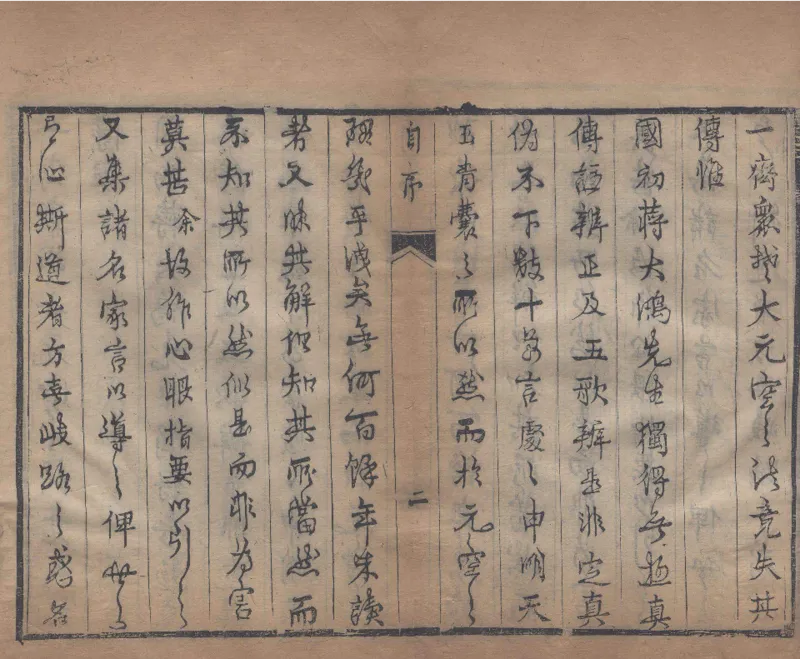 一齊衆楚大元空之法竟失其
傳惟
國初蔣大鴻先生獨得無極真
傳辨正及五歌辨是非定真
偽不下數十萬言處〻申明天
玉青囊之所以然而於元空之
自序
二
秘幾乎洩矣無何百餘年來讀
者又昧其解但知其所當然而
不知其所以然似是而非為害
莫甚余故作心眼指要以引之
又集諸名家言以導之俾世之
有心斯道者方無岐路之惑名